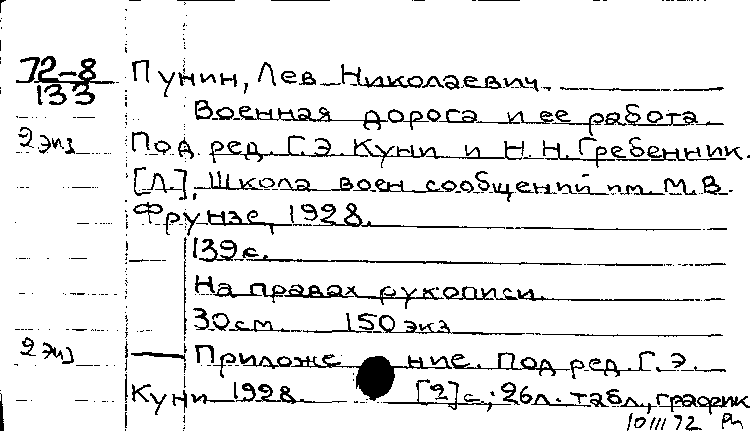 72-8 Пунин, Лев Николаевич.
133
Военная дорога и ее работа.
2 экз Под ред. Г.Э. Куни и Н.Н. Гребенник.
[Л.], Школа воен сообщений им. М.В.
Фрунзе, 1928.
139 с.
На правах рукописи.
30 см. 150 экз
2 экз — Приложение. Под ред. Г.Э.
Куни 1928. [2] с.; 26 л. табл., график
10 III 72